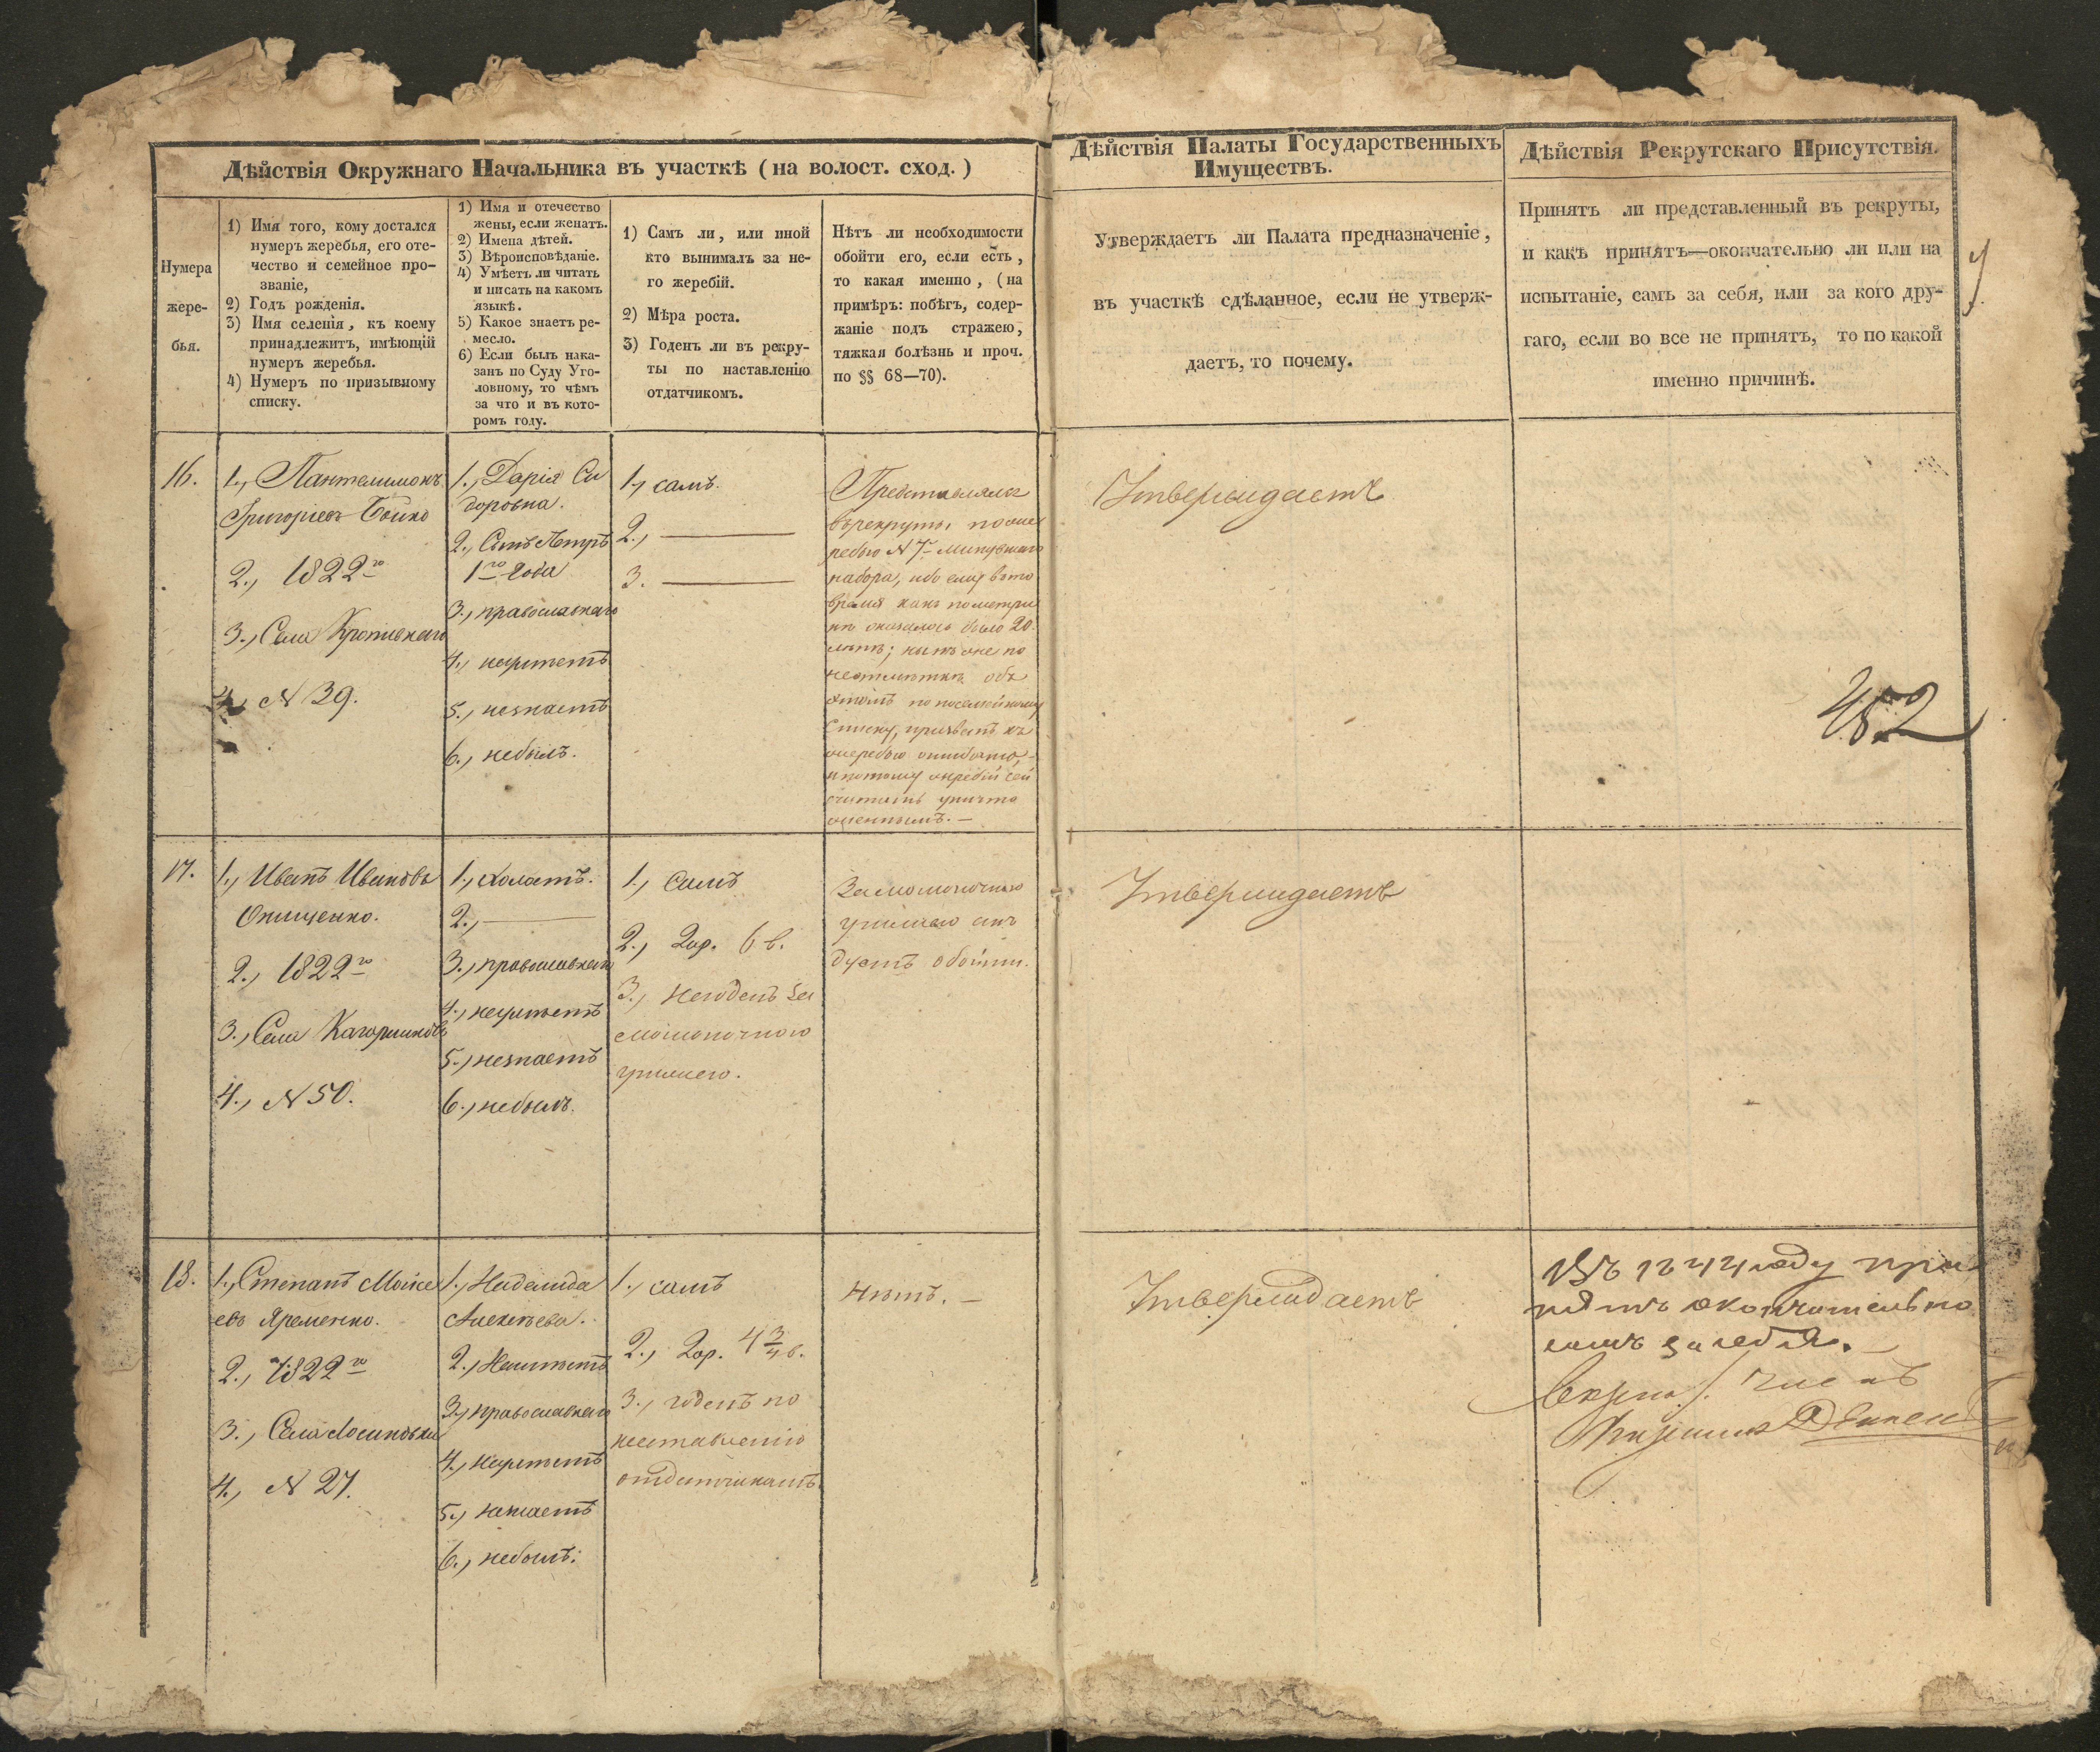 Дѣйствія Окружнаго Начальника въ участкѣ (на волост. сход.)
Нумера
жере-
бья.
1) Имя того, кому достался
нумеръ жеребья, его оте-
чество и семейное про-
званіе,
2) Годъ рожденія.
3) Имя селенія, къ коему
принадлежитъ, имѣющій
нумеръ жеребья.
4) Нумеръ по призывному
списку.
1) Имя и отечество
жены, если женатъ.
2) Имена дѣтей.
3) Вѣроисповѣданіе.
4) Умѣетъ ли читать
и писать на какомъ
языкѣ.
5) Какое знаетъ ре-
месло.
6) Если былъ нака-
занъ по Суду Уго-
ловному, то чѣмъ
за что и въ кото-
ромъ году.
1) Самъ ли, или иной
кто вынималъ за не-
го жеребій.
2) Мѣра роста.
3) Годенъ ли въ рекру-
ты по наставленію
отдатчикомъ.
Нѣтъ ли необходимости
обойти его, если есть,
то какая именно, (на
примѣръ: побѣгъ, содер-
жаніе подъ стражею,
тяжкая болѣзнь и проч.
по §§ 68—70).
Дѣйствія Палаты Государственныхъ
Имуществъ.
Утверждаетъ ли Палата предназначеніе,
въ участкѣ сдѣланное, если не утверж-
даетъ, то почему.
Дѣйствія Рекрутскаго Присутствія.
Принятъ ли представленный въ рекруты,
и какъ принятъ—окончательно ли или на
испытаніе, самъ за себя, или за кого дру-
гаго, если во все не принятъ, то по какой
именно причинѣ.
16.
1., Пантелимонъ
Григорьевъ Бойко
2., 1822го
3., Села Кропивнаго
4., N 39.
1., Дарія Си
доровна.
2., Сынъ Петръ
1го года
3., православнаго
4., неумѣетъ
5., незнаетъ
6., небылъ.
1., самъ.
2., —
3. —
Представлялся
въ рекруты по же
ребью N 7 минувшаго
набора, ибо ему въ то
время какъ по метри
кѣ оказалось было 20.
лѣтъ; нынѣ же по
объ
этомъ по посемейному
списку, призванъ къ
жеребью ошибочно,
и потому жеребій сей
считать уничто
женнымъ. —
Утверждаетъ
452
17.
1., Иванъ Ивановъ
Онищенко.
2., 1822го
3., Села
4., N 50.
1., холостъ.
2., —
3., православнаго
4., неумѣетъ
5., незнаетъ
6., небылъ.
1., Самъ
2., 2ар. 6 в.
3., Негоденъ за
мошоночною
грыжею.
За мошоночною
грыжею слѣ
дуетъ обойти.
Утверждаетъ
18.
1., Степанъ Мойсе
евъ Яременко.
2., 1822го
3., Села Лосиновки
4., N 27.
1., Надежда
Алексѣева.
2., Неимѣетъ
3., православнаго
4., неумѣетъ
5., незнаетъ
6., небылъ.
1., самъ
2., 2ар. 4 3/4 в.
3., годенъ по
наставленію
отдатчикамъ
Нѣтъ. —
Утверждаетъ
Въ 1844 году при
нятъ окончательно
самъ за себя. —